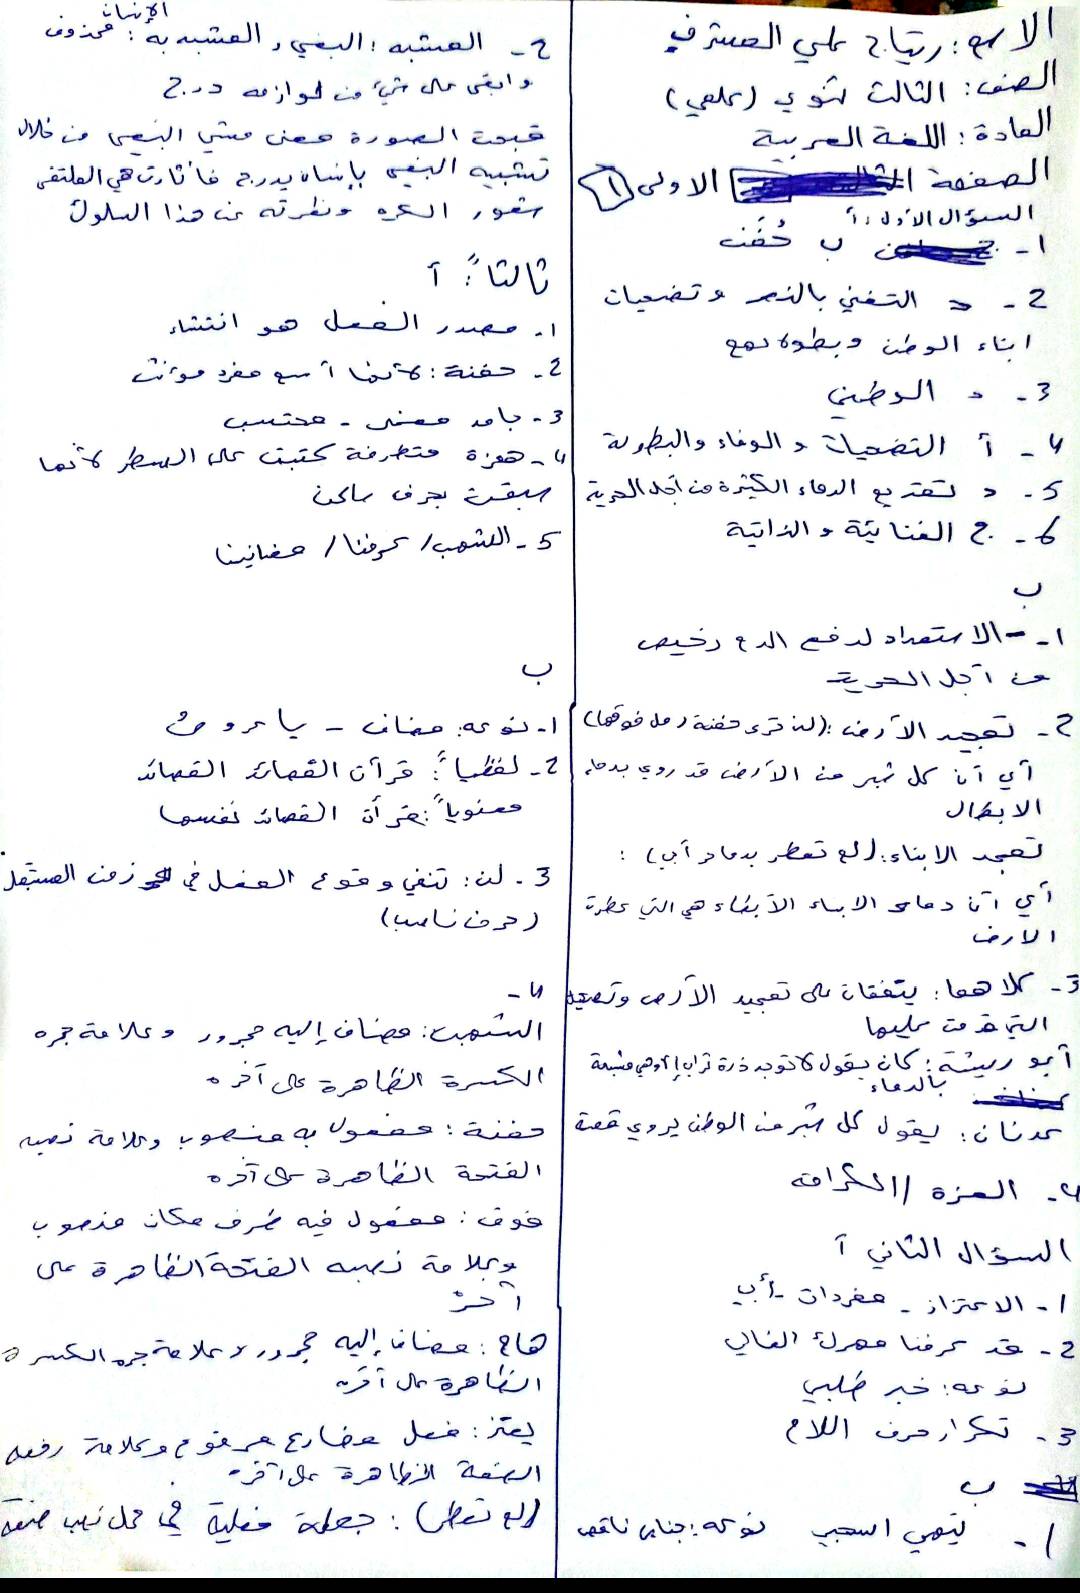 الاسم: رتاج علي المسترفي
الصف: الثالث ثنوي (علمي)
المادة: اللغة العربية
الصفحة الاولى (1)
السؤال الأول: أ
1 - ب حُفَن
2 - د التغني بالنصر وتضحيات
ابناء الوطن وبطولاتهم
3 - د الوطني
4 - أ التضحيات والوفاء والبطولة
5 - د تقديم الدماء الكثيرة من أجل الحرية
6 - ج الغنائية والذاتية
ب
1 - الاستعداد لدفع الدم رخيص
من أجل الحرية
2 - تمجيد الأرض: (لن ترى حفنة رمل فوقها)
أي أن كل شبر من الأرض قد روي بدماء
الابطال
تمجد الابناء: (لم تعطر بدماء أبي):
أي أن دماء الابناء الأبطاء هي التي عطرة
الارض
3 - كلاهما: يتفقان على تمجيد الأرض
التي قدمت عليها
أبو ريشة: كان يقول لا توجد ذرة تراب إلا وهي مشبعة
بالدماء
عدنان: يقول كل شبر من الوطن يروي قصة
4 - العزة / الكرامة
السؤال الثاني أ
1 - الاعتزاز - مفردات - أبي
2 - قد عرفنا مهرك الغالي
نوعه: خبر طلبي
3 - تكرار حرف اللام
ب
1 - نوعه: جناس ناقص
2 - المشبه: البغي، المشبه به: الإنسان محذوف
وابقى على شيء من لوازمه درج
قبحت الصورة معنى مشي البغي من خلال
تشبيه البغي بإنسان يدرج فأثارت في المتلقي
شعور الكره ونظرته عن هذا السلوك
ثالثاً: أ
1. مصدر الفعل هو انتشاء
2. حفنة: لأنها أسم مفرد مؤنث
3 - جامد معنى - محتسب
4 - همزة متطرفة كتبت على السطر لأنها
سبقت بحرف ساكن
5 - الشهب / عرفنا / مغانينا
ب
1. نوعه: مضاف - يا عروس
2 - لفظياً: قرأت القصائد القصائد
معنوياً: قرأت القصائد نفسها
3 - لن: تنفي وقوع الفعل في زمن المستقبل
(حرف ناصب)
4 -
الشهب: مضاف إليه مجرور وعلامة جره
الكسرة الظاهرة على آخره
حفنة: مفعول به منصوب وعلامة نصبه
الفتحة الظاهرة على آخره
فوق: مفعول فيه ظرف مكان منصوب
وعلامة نصبه الفتحة الظاهرة على
آخره
هام: مضاف إليه مجرور وعلامة جره الكسرة
الظاهرة على آخره
يعتز: فعل مضارع مرفوع وعلامة رفعه
الضمة الظاهرة على آخره
(لم تعطر): جملة فعلية في محل نصب صفة